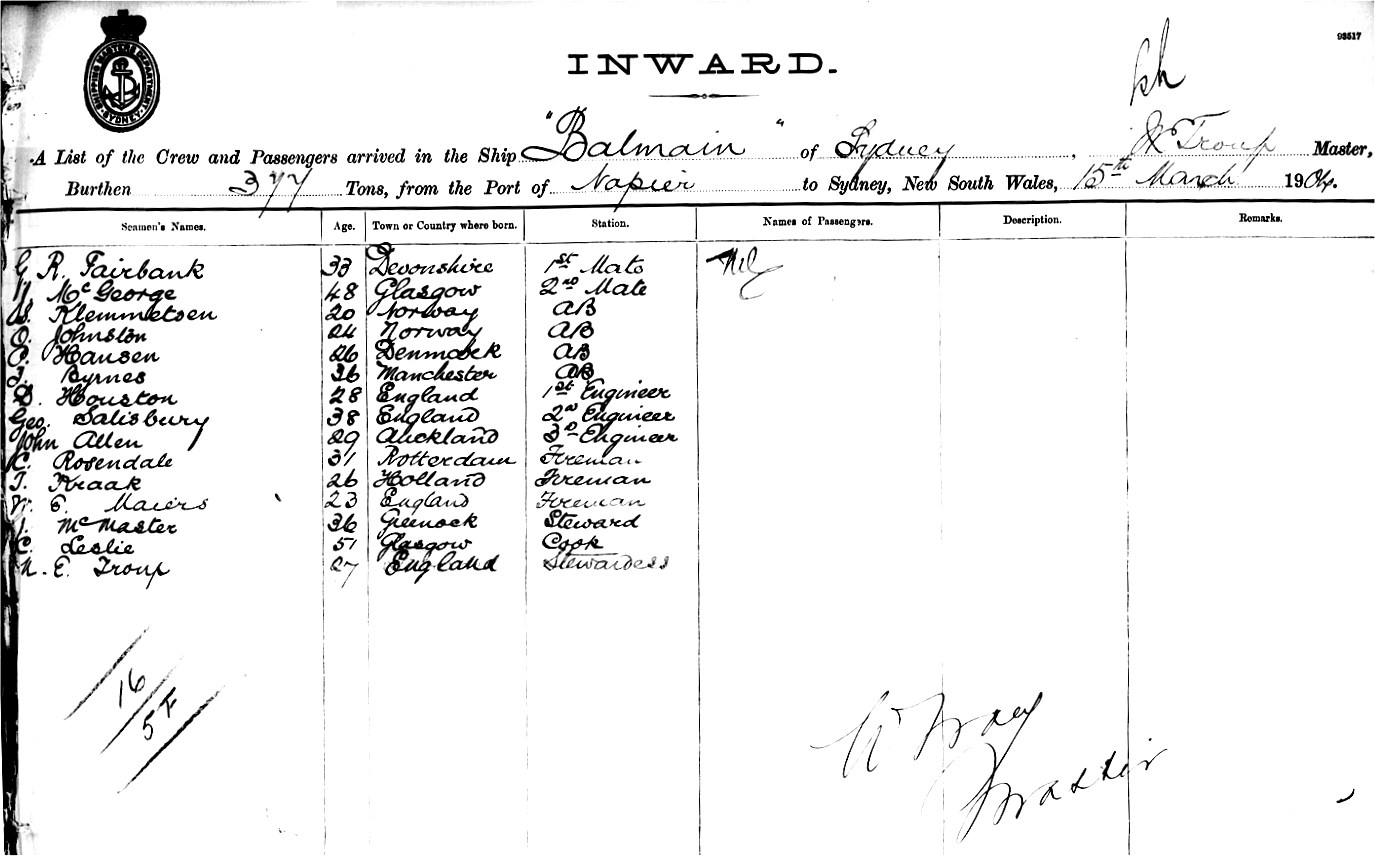 93517
SHIPPING MASTERS DEPARTMENT SYDNEY
INWARD.
A List of the Crew and Passengers arrived in the Ship "Balmain" of Sydney, Troup Master,
Burthen 377 Tons, from the Port of Napier to Sydney, New South Wales, 15th March 1904.
Seamen's Names. Age. Town or Country where born. Station. Names of Passengers. Description. Remarks.
G. R. Fairbank 33 Devonshire 1st Mate Nil
McGeorge 48 Glasgow 2nd Mate
Klemmetsen 20 Norway AB
O. Johnston 24 Norway AB
Hansen 26 Denmark AB
Byrnes 36 Manchester AB
D. Houston 28 England 1st Engineer
Geo. Salisbury 38 England 2nd Engineer
John Allen 29 Auckland 3rd Engineer
C. Rosendale 31 Rotterdam Fireman
Kraak 26 Holland Fireman
W. E. Maiers 23 England Fireman
McMaster 36 Greenock Steward
C. Leslie 51 Glasgow Cook
E. Troup 27 England Stewardess
16
5 F
Master